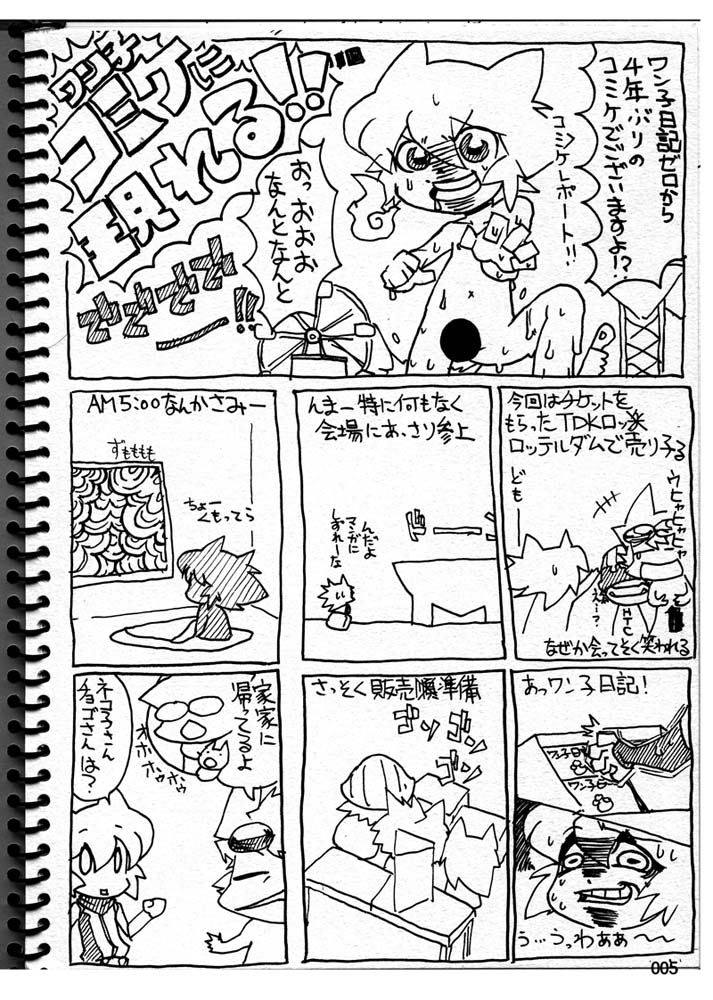 ワン子日記ゼロから
4年ぶりの
コミケでございますよ!?
コミケレポート!!
おっおおお
なんとなんと
ワン子
コミケに
現れる!!
今回はチケットを
もらったTDKロッ楽
ロッテルダムで売り子る
ども
ウヒャヒャヒャヒャ
HTC
なぜか会ってそく笑われる
んまー特に何もなく
会場にあっさり参上
んだよ
マンガに
しづれーな
AM5:00なんかさみー
ずももも
ちょー
くもってら
あっワン子日記!
ワン子日
ワン子
う…うっわぁぁ〜〜
さっそく販売準備
ゴソゴソ
家に
帰ってるよ
オホホウホウ
ネコ子さん
チョゴさんは?
005